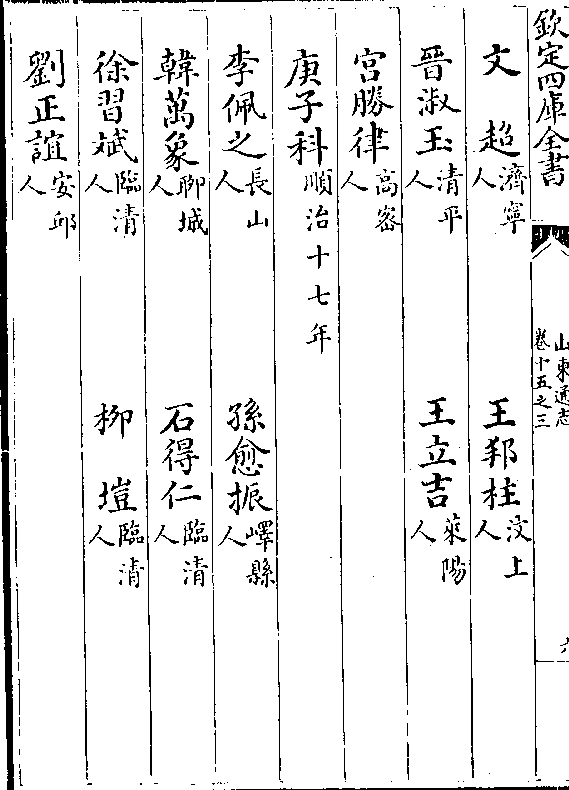 欽定四庫全書
山東通志
卷十五之三
六
文超濟寧人
王邦柱汶上人
晉淑玉清平人
王立吉萊陽人
宫勝律高密人
庚子科順治十七年
李佩之長山人
孫愈振嶧縣人
韓萬象聊城人
石得仁臨清人
徐習斌臨清人
柳塏臨清人
劉正誼安邱人